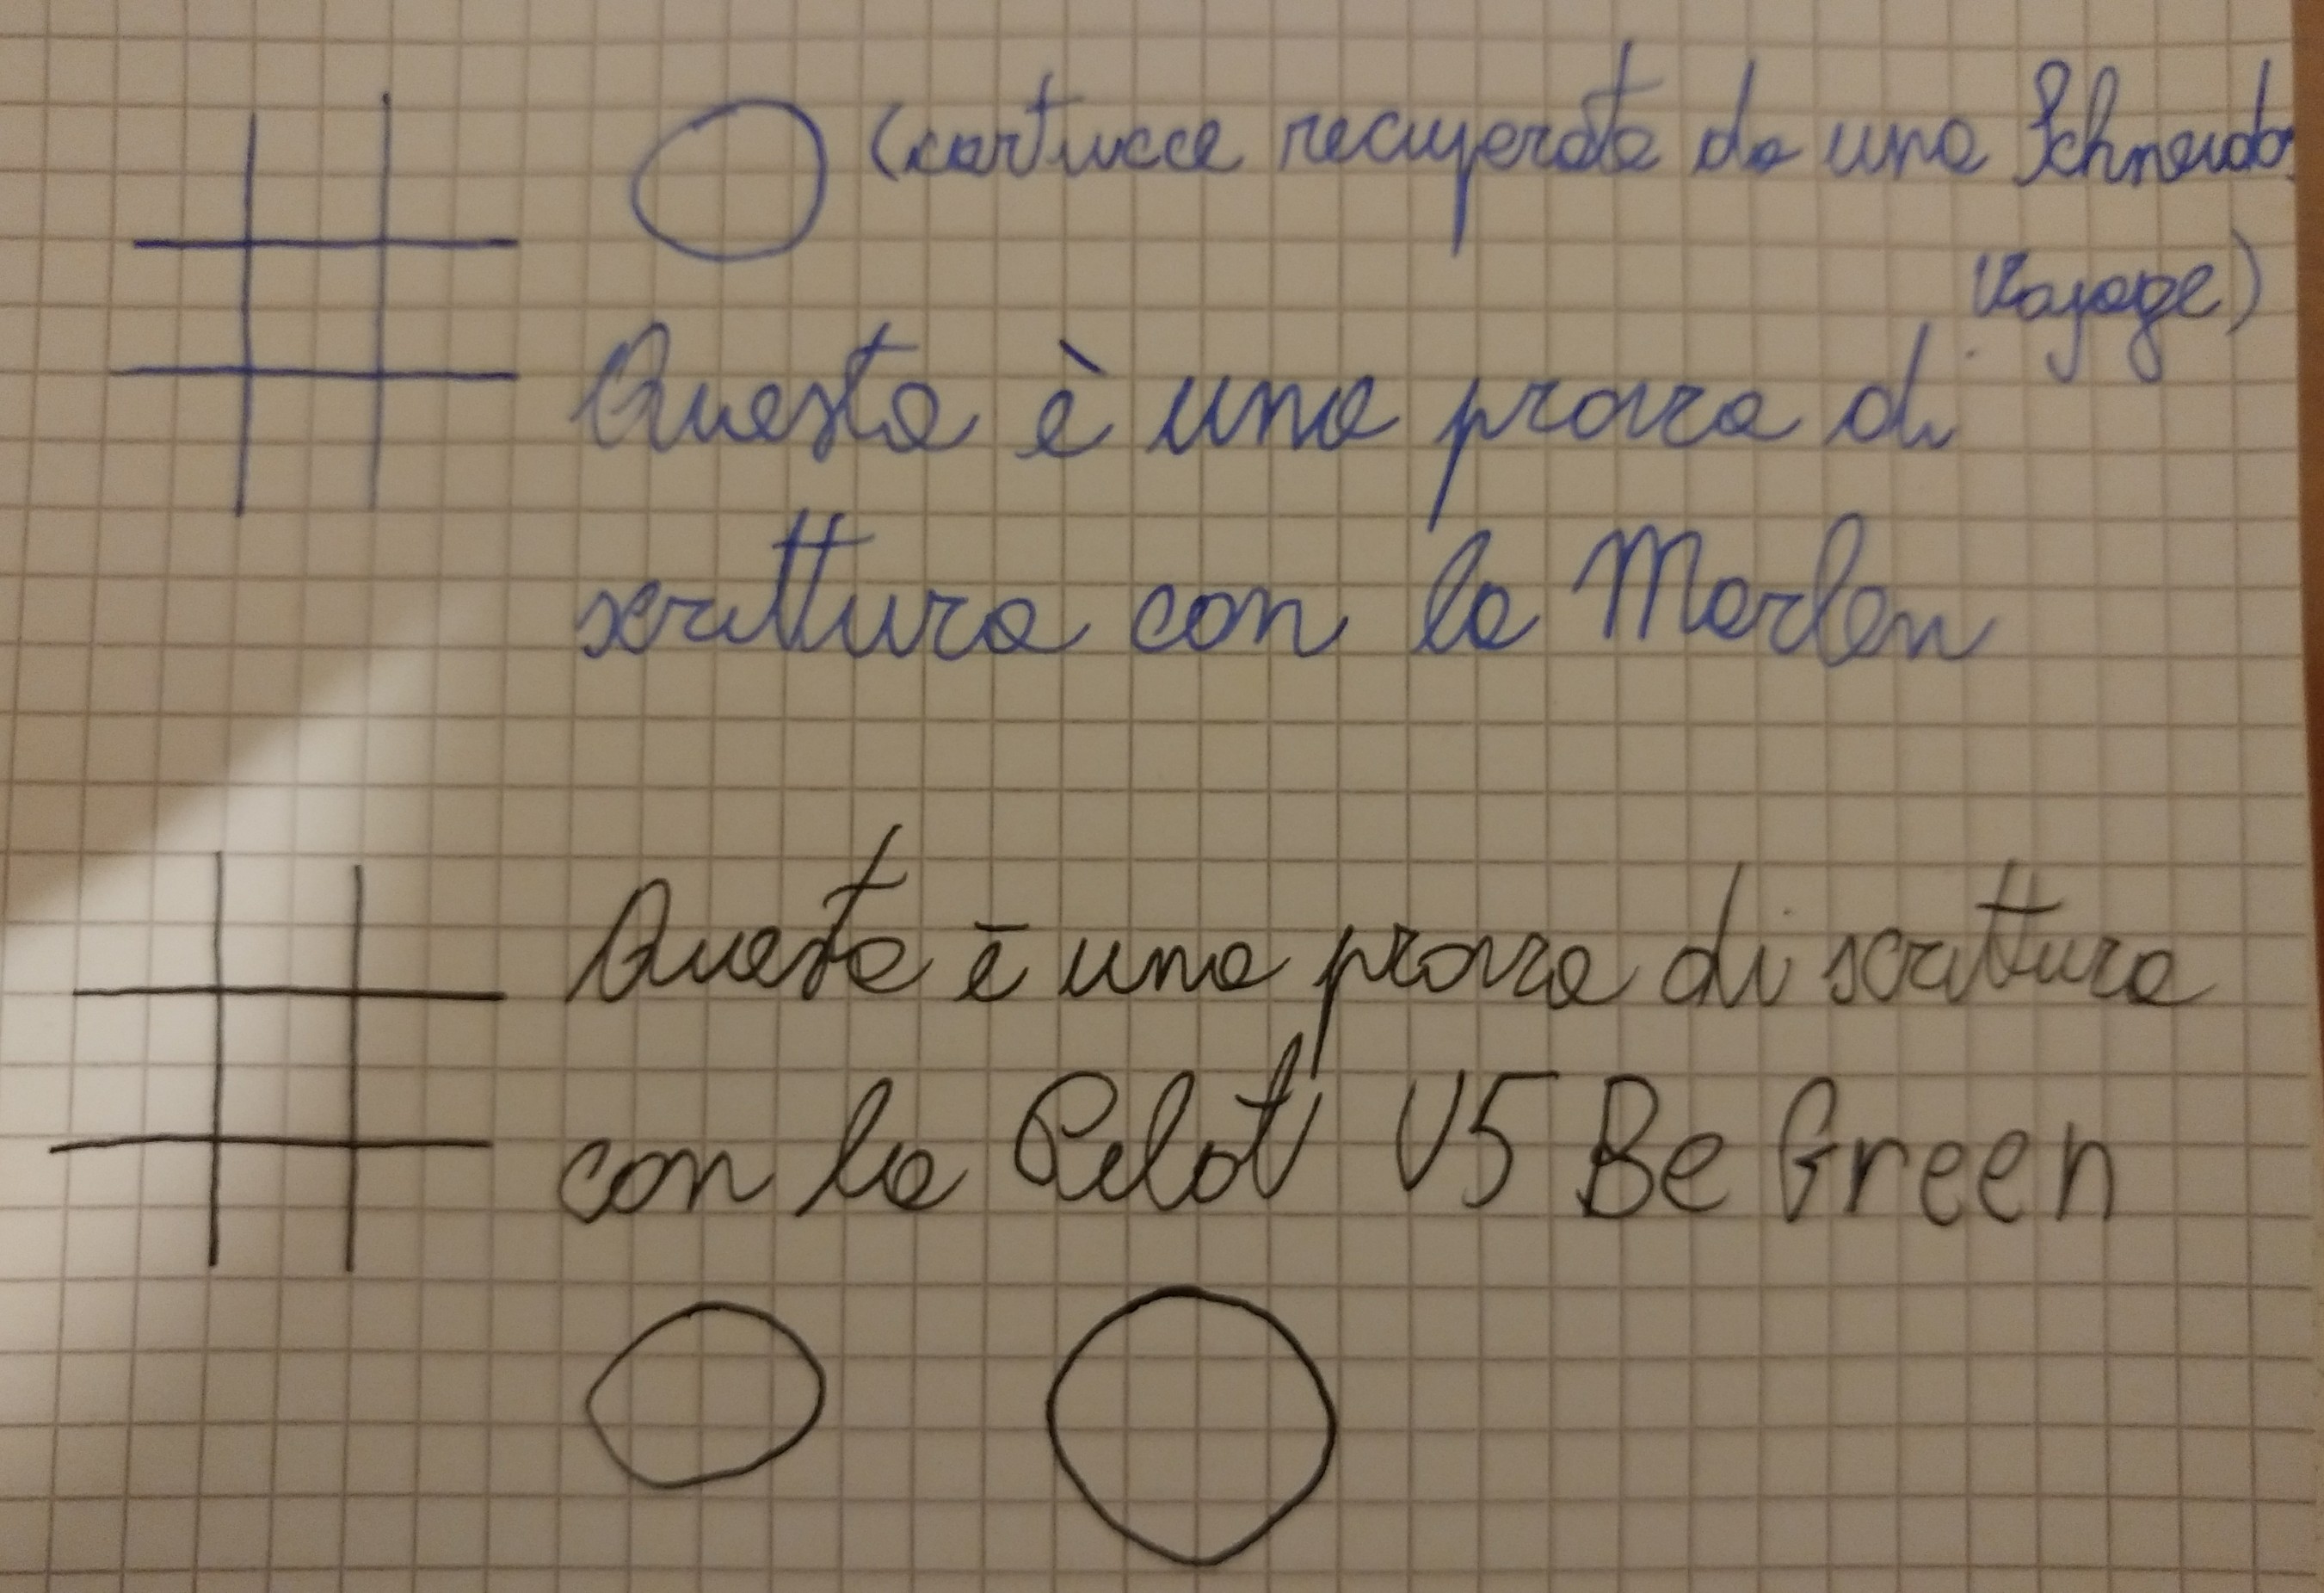 (cartucce recuperate da una Schneider
Voyage)
Questa è una prova di
scrittura con la Marlen
Questa è una prova di scrittura
con la Pilot V5 Be Green